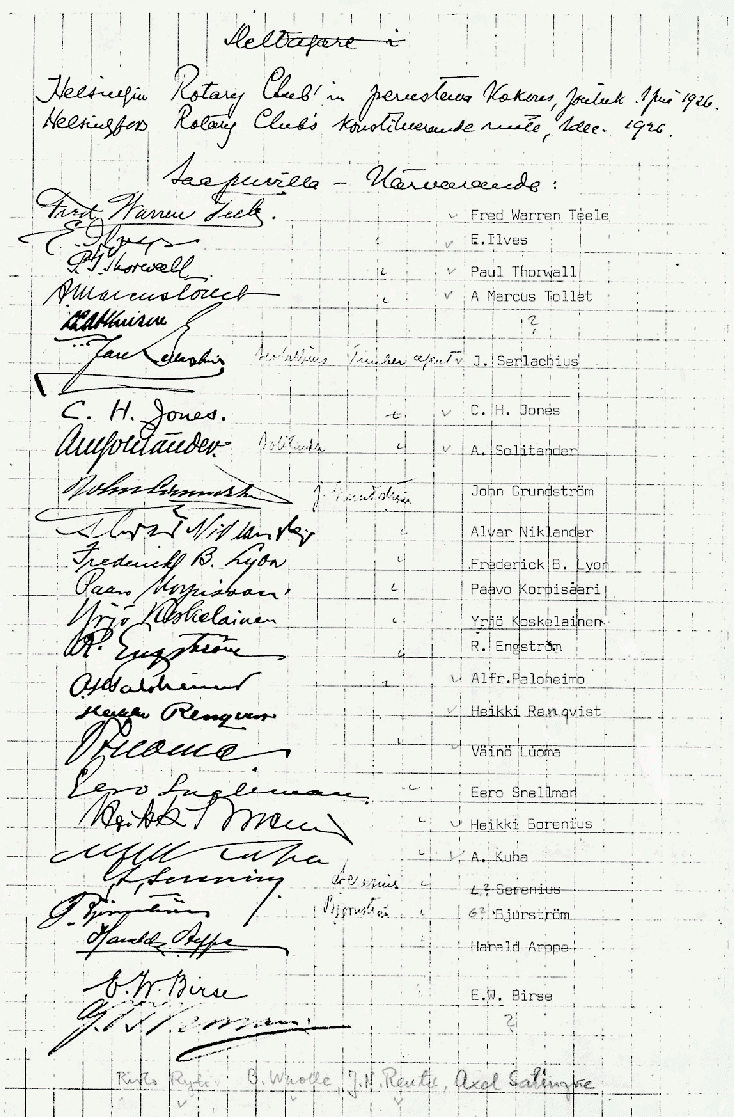 Deltagare i
Helsingin Rotary Club'in perustava Kokous, Jouluk. 1 p:nä 1926.
Helsingfors Rotary Club's konstituerande möte, 1 dec. 1926.
Saapuvilla – Närvarande:
Fred Warren Teele. Fred Warren Teele
E. Ilves E.Ilves
P. Thorwall Paul Thorwall
A Marcus Tollet A Marcus Tollet
?
Serlachius Timber agent J. Serlachius
C. H. Jones. C. H. Jones
A. Solitander Solitander A. Solitander
John Grundström J. Grundström John Grundström
Alvar Niklander Alvar Niklander
Frederick B. Lyon Frederick B. Lyon
Paavo Korpisaari Paavo Korpisaari
Yrjö Koskelainen Yrjö Koskelainen
R. Engström R. Engström
Alfr.Paloheimo
Heikki Renqvist Heikki Renqvist
V. Luoma Väinö Luoma
Eero Snellman Eero Snellman
Heikki Sorenius
A. Kuha
L? Serenius
Björnström G? Bjurström
Harald Arppe Harald Arppe
E. W. Birse E.W. Birse
?
Risto Ryti B. Wuolle, J.N. Rente, Axel Solingre